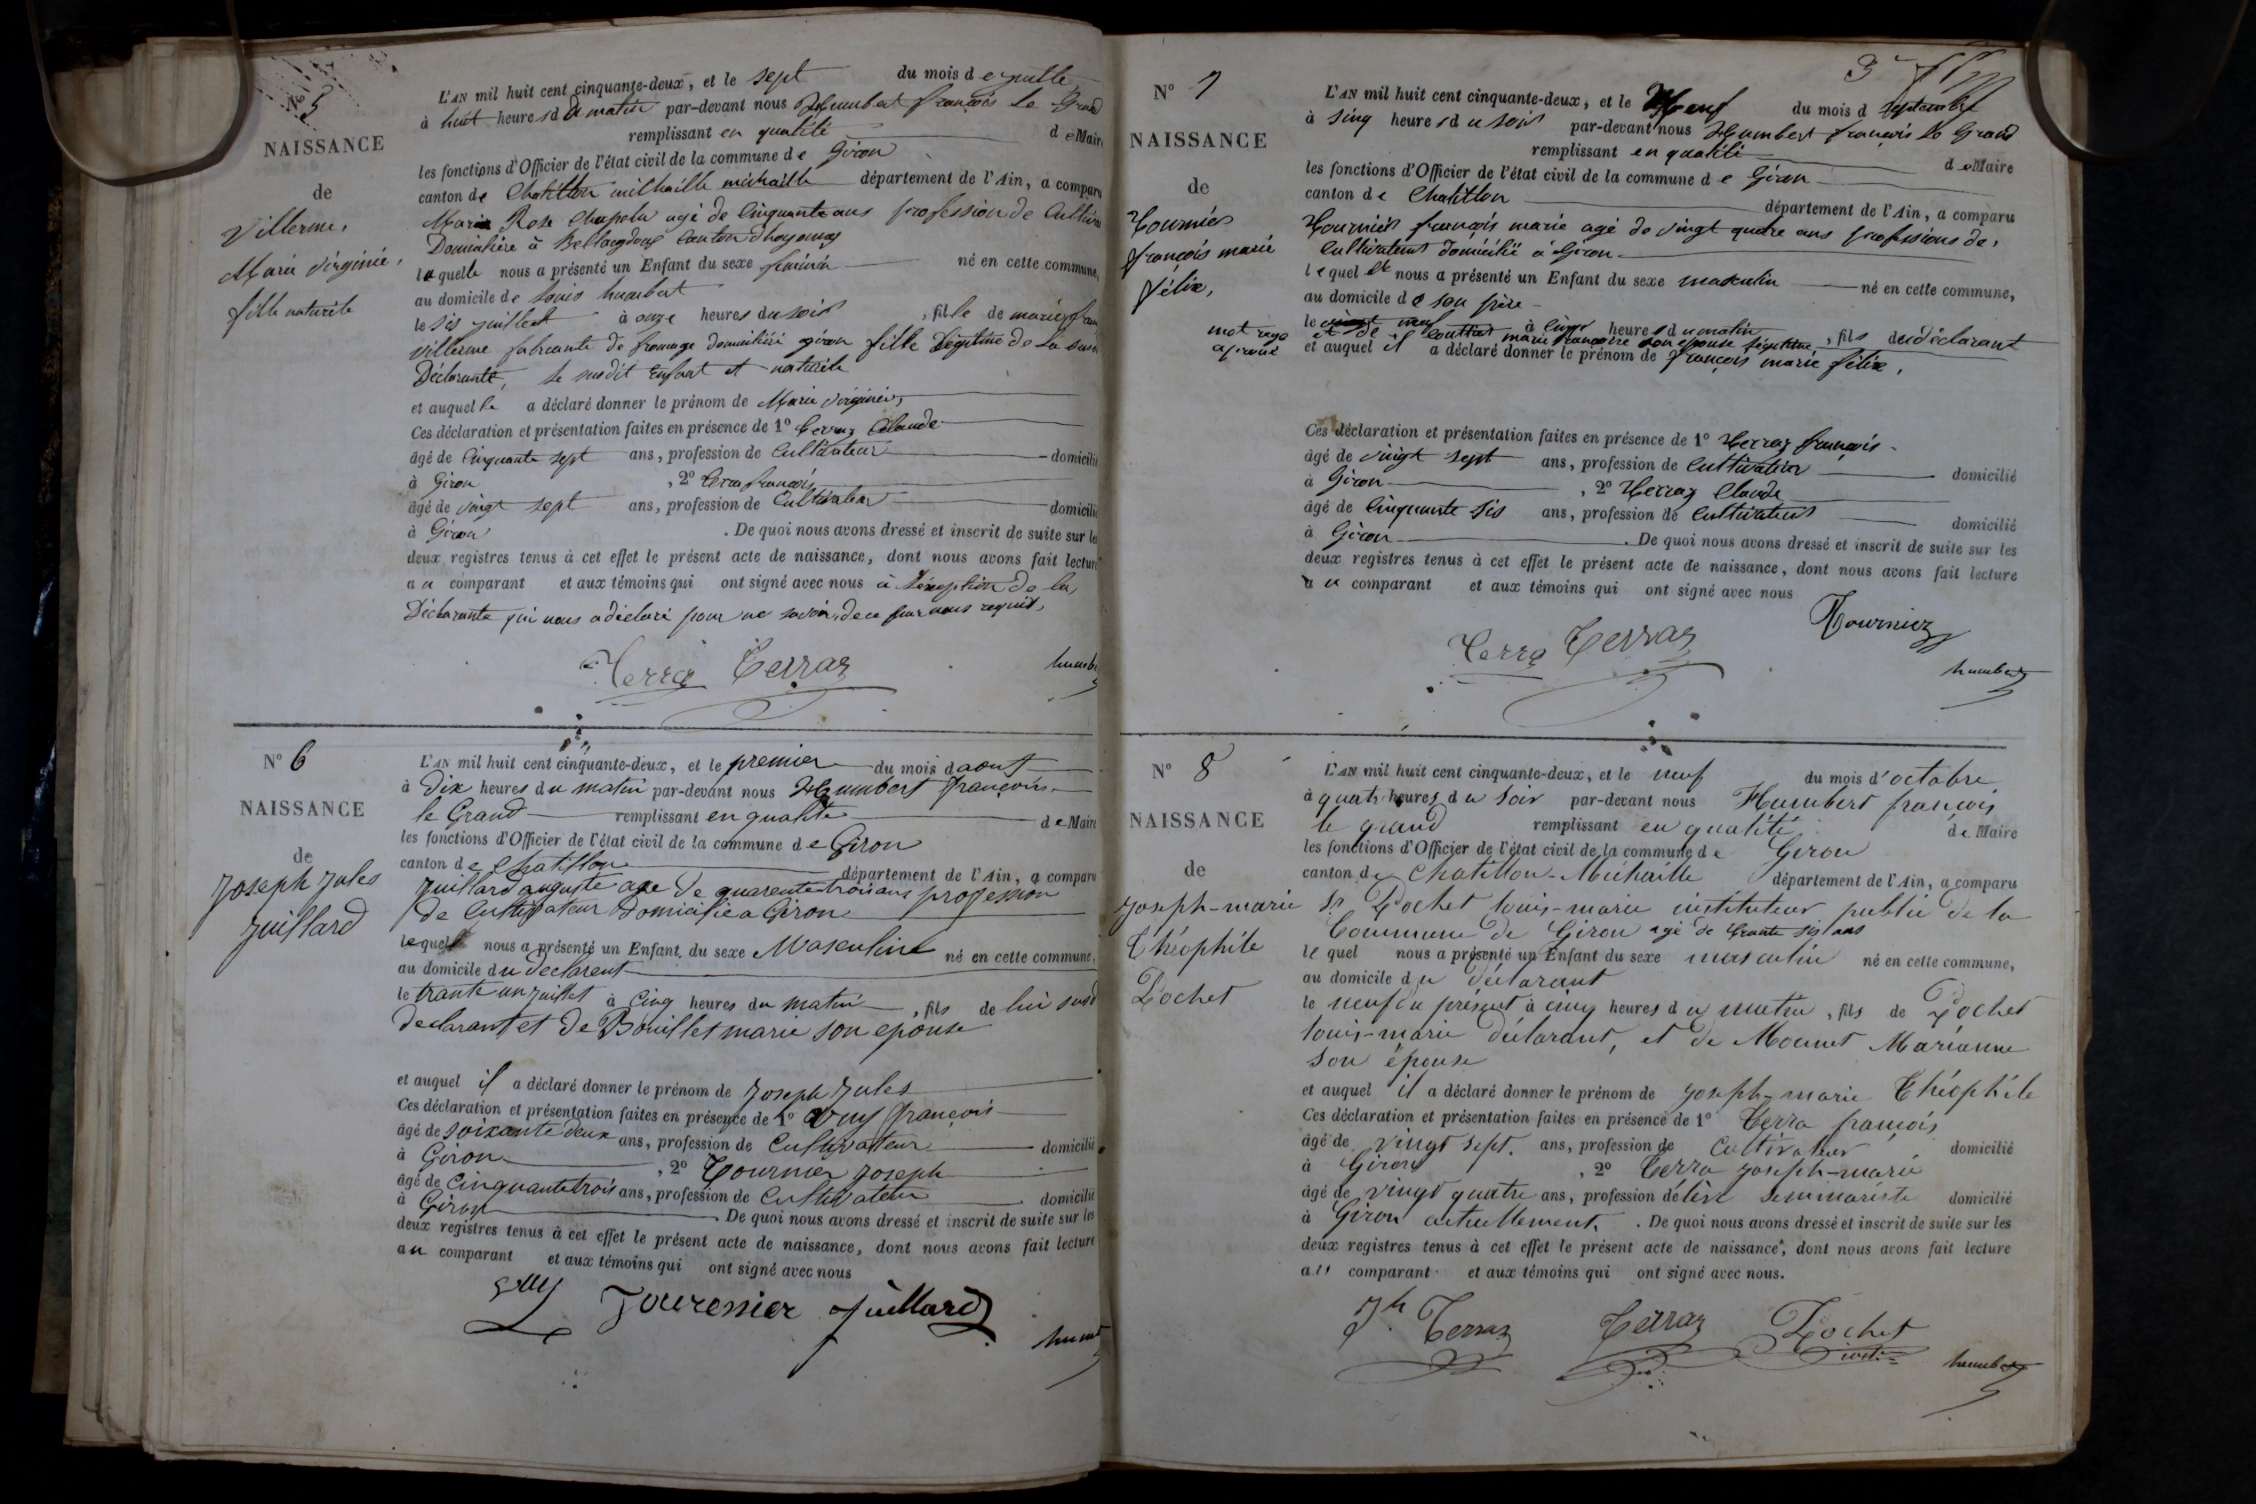 N° 5
NAISSANCE
de
Villerme,
Marie virginie,
fille naturele
L'AN mil huit cent cinquante-deux, et le sept du mois de juillet
à huit heures du matin par-devant nous Humbert françois Le Grand
remplissant en qualité de Maire
les fonctions d'Officier de l'état civil de la commune de Giron
canton de Chatillon michaille département de l'Ain, a comparu
Marie Rose Chapelu agé de Cinquante ans profession de Cultiva
Domicilière à canton d'hoyonnax
laquelle nous a présenté un Enfant du sexe féminin né en cette commune,
au domicile de Louis humbert
le sis juillet à onze heures du soir, fille de marie
villerme fabricante de fromage domicilière giron fille légitime de La
Déclarante, le susdit Enfant et naturele
et auquel le a déclaré donner le prénom de Marie virginie,
Ces déclaration et présentation faites en présence de 1° Terraz Claude
âgé de Cinquante sept ans, profession de Cultivateur domicilié
à Giron, 2° Terra françois
âgé de vingt sept ans, profession de Cultivateur domicilié
à Giron. De quoi nous avons dressé et inscrit de suite sur les
deux registres tenus à cet effet le présent acte de naissance, dont nous avons fait lecture
au comparant et aux témoins qui ont signé avec nous à l'éxeption de la
Déclarante qui nous a déclaré pour ne savoir, de ce par nous requis,
Terra Terraz humb
N° 6
NAISSANCE
de
Joseph Jules
Juillard
L'AN mil huit cent cinquante-deux, et le premier du mois d aout
à Dix heures du matin par-devant nous Humbert françois
le Grand remplissant en qualité de Maire
les fonctions d'Officier de l'état civil de la commune de Giron
canton de Chatillon département de l'Ain, a comparu
Juillard auguste age de quarente trois ans profession
de Cultivateur Domicilie a Giron
lequel nous a présenté un Enfant du sexe Masculine né en cette commune,
au domicile du declarent
le trante un juillet à Cinq heures du matin, fils de lui susd
declarant et de Bouillet marie son epouse
et auquel il a déclaré donner le prénom de Joseph Jules
Ces déclaration et présentation faites en présence de 1° Vuy françois
âgé de soixante deux ans, profession de Cultivateur domicilié
à Giron, 2° Tournier Joseph
âgé de Cinquante trois ans, profession de Cultivateur domicilié
à Giron. De quoi nous avons dressé et inscrit de suite sur les
deux registres tenus à cet effet le présent acte de naissance, dont nous avons fait lecture
au comparant et aux témoins qui ont signé avec nous
Vuy Tournier Juillard
3
N° 7
NAISSANCE
de
Tournier
françois marie
félix,
mot rayé
aprouvé
L'AN mil huit cent cinquante-deux, et le Neuf du mois d septembre
à sinq heures du soir par-devant nous Humbert françois Le Grand
remplissant en qualité de Maire
les fonctions d'Officier de l'état civil de la commune de Giron
canton de Chatillon département de l'Ain, a comparu
Tournier françois marie agé de vingt quatre ans professions de,
Cultivateur domicilié à Giron
lequel nous a présenté un Enfant du sexe maskulin né en cette commune,
au domicile de son père
le à Cinq heures du matin, fils du déclarant
et de marie françoise son épouse légitime
et auquel il a déclaré donner le prénom de françois marie félix,
Ces déclaration et présentation faites en présence de 1° Terraz françois
âgé de vingt sept ans, profession de Cultivateur domicilié
à Giron, 2° Terraz Claude
âgé de Cinquante sis ans, profession de Cultivateur domicilié
à Giron. De quoi nous avons dressé et inscrit de suite sur les
deux registres tenus à cet effet le présent acte de naissance, dont nous avons fait lecture
au comparant et aux témoins qui ont signé avec nous
Tournier
Terra Terraz
humbert
N° 8
NAISSANCE
de
Joseph-marie
Théophile
Rochet
L'AN mil huit cent cinquante-deux, et le neuf du mois d'octobre
à quatr heures du soir par-devant nous Humbert françois
le grand remplissant en qualité de Maire
les fonctions d'Officier de l'état civil de la commune de Giron
canton de Chatillon-Michaille département de l'Ain, a comparu
Sr Rochet louis-marie instituteur public de la
Commune de Giron agé de trante sis ans
lequel nous a présenté un Enfant du sexe masculin né en cette commune,
au domicile du déclarant
le neuf du présent à cinq heures du matin, fils de Rochet
louis-marie déclarant, et de Mounet Marianne
son épouse
et auquel il a déclaré donner le prénom de Joseph-marie Théophile
Ces déclaration et présentation faites en présence de 1° Terra françois
âgé de vingt sept. ans, profession de Cultivateur domicilié
à Giron, 2° Terra joseph-marie
âgé de vingt quatre ans, profession d'élève seminariste domicilié
à Giron actuellement. De quoi nous avons dressé et inscrit de suite sur les
deux registres tenus à cet effet le présent acte de naissance, dont nous avons fait lecture
au comparant et aux témoins qui ont signé avec nous.
Jh Terraz Terraz Rochet
humbert